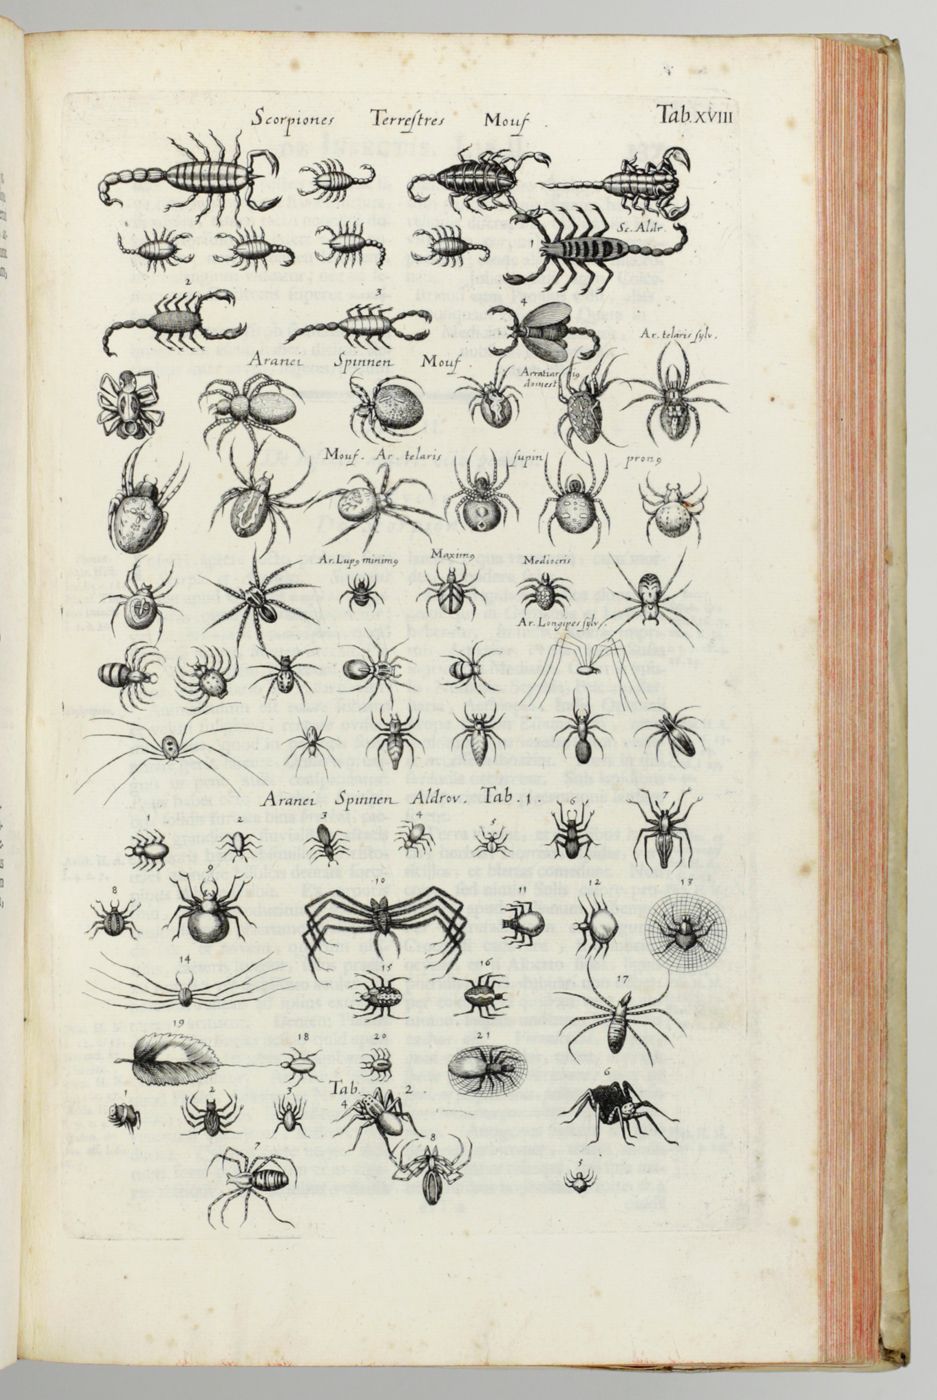 Scorpiones Terreſtres Mouf. Tab. XVIII
Sc. Aldr.
1
2 3 4
Ar. telaris ſylv.
Aranei Spinnen Mouf.
domest
Mouf. Ar. telaris ſupin prong
Ar. Lupꝯ minimꝯ Maximꝯ Mediocris
Ar. Longipes ſylv.
Aranei Spinnen Aldrov. Tab. 1.
1 2 3 4 5 6 7
8 9 10 11 12 13
14 15 16 17
19 18 20 21
Tab 2.
1 2 3 4 6
7 8 5